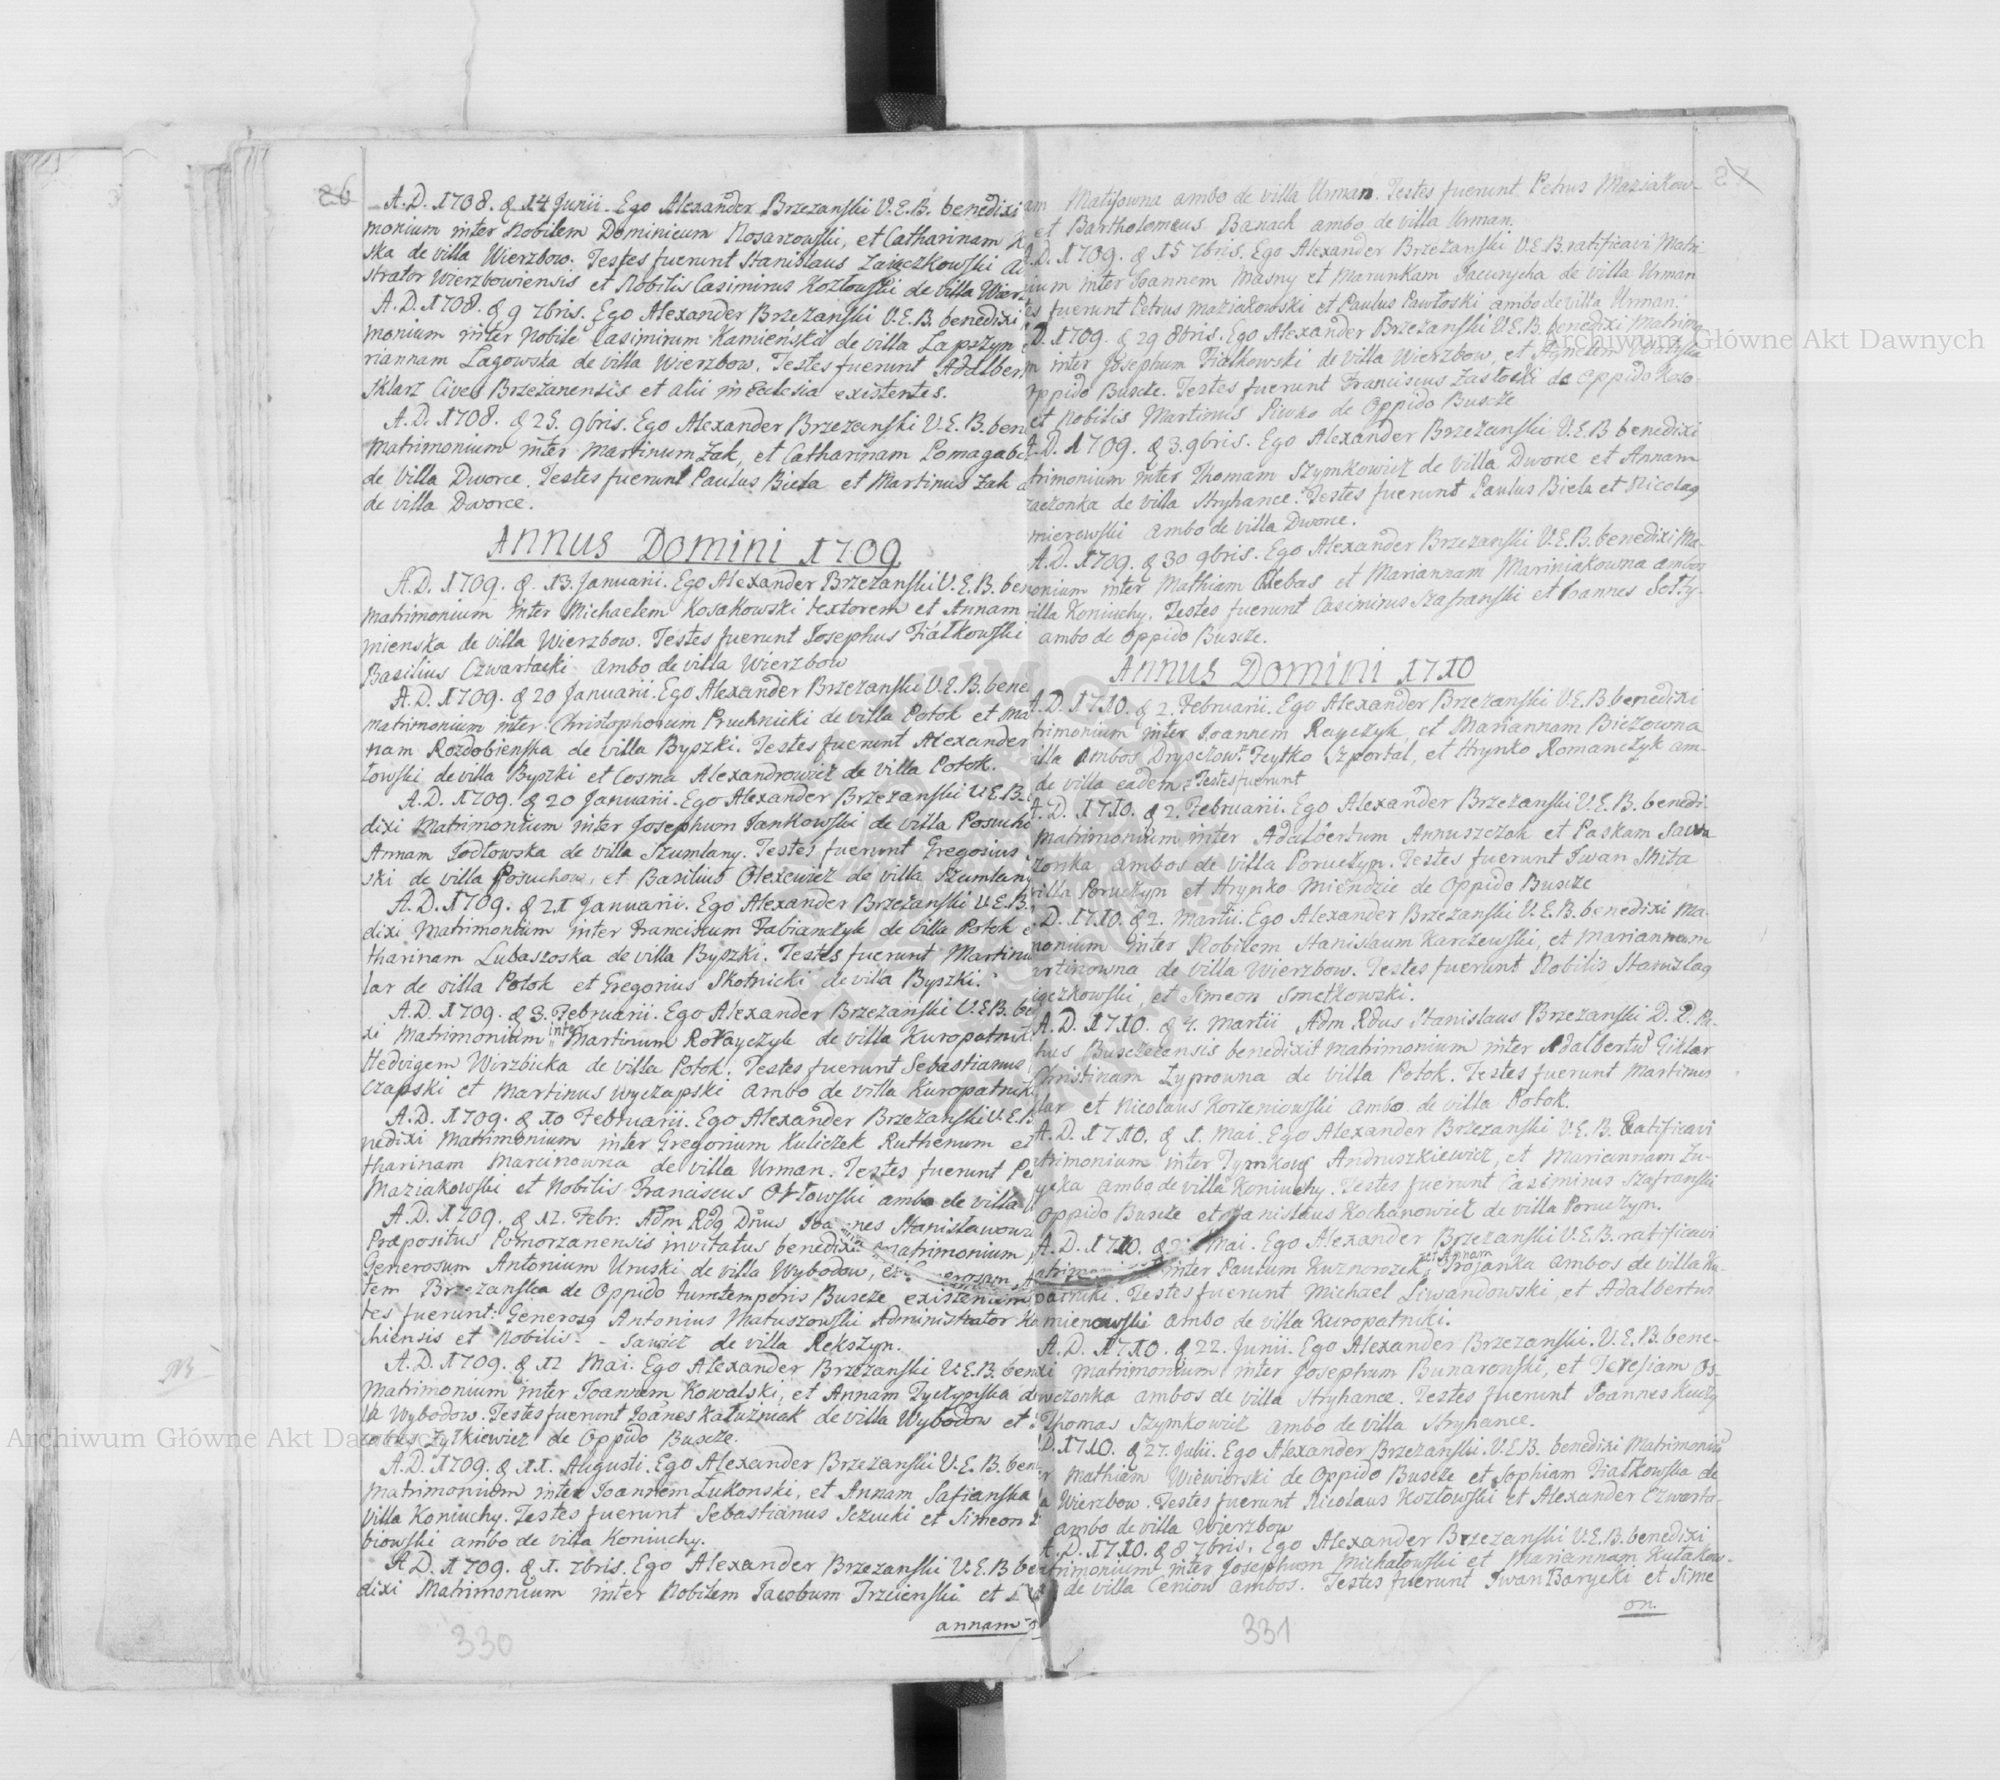 26
A.D. 1708. & 14 Junii. Ego Alexander Brzezanski V.E.B. benedixi
monium inter Nobilem Dominicum Kosarzowski, et Catharinam
ska de villa Wierzbow. Testes fuerunt Stanislaus Zaięczkowski Ad
strator Wierzbowiensis et Nobilis Casimirus Kozłowski de villa Wierz
A.D. 1708. & 9 7bris. Ego Alexander Brzezanski V.E.B. benedixi
monium inter Nobile Casimirum Kamieński de villa Lapszyn
riannam Lagowska de villa Wierzbow. Testes fuerunt Adalber
Sklarz Cives Brzezanensis et alii in Ecclesia existentes.
A.D. 1708. & 25. 9bris. Ego Alexander Brzezanski V.E.B. bene
Matrimonium inter Martinum Zak, et Catharinam Pomagabo
de Villa Dworce. Testes fuerunt Paulus Bieła et Martinus Zak a
de villa Dworce.
Annus Domini 1709
A.D. 1709. & 13. Januarii. Ego Alexander Brzezanski V.E.B. ben
matrimonium inter Michaelem Kosakowski textorem et Annam
mienska de villa Wierzbow. Testes fuerunt Josephus Fiałkowski
Basilius Czwartacki ambo de villa Wierzbow
A.D. 1709. & 20 Januarii. Ego Alexander Brzezanski V.E.B. bene
matrimonium inter Christophorum Pruchnicki de villa Potok et Ma
nam Rozdobienska de villa Byszki. Testes fuerunt Alexander
łowski de villa Byszki et Cosma Alexandrowicz de villa Potok.
A.D. 1709. & 20 Januarii. Ego Alexander Brzezanski V.E.B.
dixi Matrimonium inter Josephum Jankowski de villa Posucho
Annam Jodłowska de villa Szumlany. Testes fuerunt Gregorius
ski de villa Posuchow, et Basilius Olexewicz de villa Szumlany
A.D. 1709. & 21 Januarii. Ego Alexander Brzezanski V.E.B.
dixi Matrimonium inter Franciscum Fabianczyk de villa Potok e
tharinam Lubaszoska de villa Byszki. Testes fuerunt Martinu
lar de villa Potok et Gregorius Skotnicki de villa Byszki.
A.D. 1709. & 3. Februarii. Ego Alexander Brzezanski V.E.B. be
xi Matrimonium inter Martinum Rotayczyk de villa Kuropatnik
Hedvigem Wirzbicka de villa Potok. Testes fuerunt Sebastianus
Czapski et Martinus Wyczapski ambo de villa Kuropatnik
A.D. 1709. & 10 Februarii. Ego Alexander Brzezanski V.E.B
nedixi Matrimonium inter Gregorium Kuliczek Ruthenum et
tharinam Marcinowna de villa Urman. Testes fuerunt Pe
Maziakowski et Nobilis Franciscus Orłowski ambo de villa
A.D. 1709. & 12. Febr: Adm Rdg Dnus Joannes Stanisławow
Præpositus Pomorzanensis invitatus benedixit matrimonium
Generosum Antonium Uruski de villa Wybodow, et Generosam
tem Brzezanska de Oppido tumtemporis Buszcze existentium
tes fuerunt: Generosg Antonius Matuszowski Administrator Ko
chiensis et Nobilis - - Sawicz de villa Rekszyn.
A.D. 1709. & 12 Mai. Ego Alexander Brzezanski V.E.B. ben
Matrimonium inter Joannem Kowalski, et Annam Tyczynska d
la Wybodow. Testes fuerunt Joanes Kałuzniak de villa Wybodow et
cobus Zyłkiewicz de Oppido Buszcze.
A.D. 1709. & 11. Augusti. Ego Alexander Brzezanski V.E.B. ben
matrimonium inter Joannem Łukonski, et Annam Safianska
villa Koniuchy. Testes fuerunt Sebastianus Sczucki et Simeon
biowski ambo de villa Koniuchy.
A.D. 1709. & 1. 7bris. Ego Alexander Brzezanski V.E.B be
dixi Matrimonium inter Nobilem Jacobum Trzcienski et
annam
330
27
am Matysowna ambo de villa Urman. Testes fuerunt Petrus Maziakow-
et Bartholomeus Banach ambo de villa Urman.
A.D. 1709. & 15 7bris. Ego Alexander Brzezanski V.E.B. ratificavi Matri
ium inter Joannem Masny et Marunkam Jacurycha de villa Urman
es fuerunt Petrus Maziakowski et Paulus Pawłoski ambo de villa Urman.
D. 1709. & 29 8bris. Ego Alexander Brzezanski V.E.B. benedixi Matrimo
m inter Josephum Fiałkowski de villa Wierzbow, et Agnetem
ppido Buszcze. Testes fuerunt Franciscus Zasłocki de Oppido Koso
et Nobilis Martinus Piwko de Oppido Buszcze
A.D. 1709. & 3. 9bris. Ego Alexander Brzezanski V.E.B benedixi
trimonium inter Thomam Szymkowicz de Villa Dworce et Annam
zaczonka de villa Stryhance. Testes fuerunt Paulus Bieła et Nicolaq
mierowski ambo de villa Dworce.
A.D. 1709. & 30 9bris. Ego Alexander Brzezanski V.E.B. benedixi Ma-
onium inter Mathiam Chlebas et Mariannam Mariniakowna ambos
illa Koniuchy. Testes fuerunt Casimirus Szafranski et Joannes Sołty-
ambo de Oppido Buszcze.
Annus Domini 1710
A.D. 1710. & 2. Februarii. Ego Alexander Brzezanski V.E.B benedixi
trimonium inter Joannem Rayczyk, et Mariannam Biczowna
illa ambos Dryszczow. Feytko Szportal, et Hrynko Romanczyk am-
de villa eadem Testes fuerunt
A.D. 1710. & 2. Februarii. Ego Alexander Brzezanski V.E.B. benedi-
Matrimonium inter Adalbertum Annuszczak et Paskam Sawa
zonka ambos de villa Poruczyn. Testes fuerunt Iwan Skita
villa Poruczyn et Hrynko Miendzie de Oppido Buszcze
D. 1710. & 2. Martii. Ego Alexander Brzezanski V.E.B. benedixi Ma-
monium inter Nobilem Stanislaum Karczewski, et Mariannam
artinowna de villa Wierzbow. Testes fuerunt Nobilis Stanislaq
ięczkowski, et Simeon Smetkowski.
A.D. 1710. & 4. Martii Adm Rdus Stanislaus Brzezanski D. P. Pa-
hus Buszczecensis benedixit matrimonium inter Adalbertu Giklar
Christinam Zyprowna de villa Potok. Testes fuerunt Martinus
lar et Nicolaus Korzeniowski ambo de villa Potok.
A.D. 1710. & 1. Mai. Ego Alexander Brzezanski V.E.B. Ratificavi
atrimonium inter Tymkow Andruszkiewicz, et Mariannam Zu-
ycka ambo de villa Koniuchy. Testes fuerunt Casimirus Szafranski
Oppido Buszcze et Stanislaus Kochanowicz de villa Poruczyn.
A.D. 1710. & Mai. Ego Alexander Brzezanski V.E.B. ratificavi
atrimonium inter Paulum Kuznorozek, et Annam Trojanka ambos de villa Ku-
patniki. Testes fuerunt Michael Liwandowski, et Adalbertus
mienowski ambo de villa Kuropatniki.
A.D. 1710. & 22. Junii. Ego Alexander Brzezanski. V.E.B. bene-
xi Matrimonium inter Josephum Bunarowski, et Teresiam Os-
wczonka ambos de villa Stryhance. Testes fuerunt Joannes Kuczy
Thomas Szymkowicz ambo de villa Stryhance.
D. 1710. & 27. Julii. Ego Alexander Brzezanski. V.E.B. benedixi Matrimoniu
r Mathiam Wiewiorski de Oppido Buszcze et Sophiam Fiałkowska de
a Wierzbow. Testes fuerunt Nicolaus Kozłowski et Alexander Czwarta-
ambo de villa Wierzbow
A.D. 1710. & 8 7bris. Ego Alexander Brzezanski V.E.B. benedixi
atrimonium inter Josephum Michałowski et Mariannam Kułakow-
de villa Ceniow ambos. Testes fuerunt Iwan Barycki et Sime
on.
331
Archiwum Główne Akt Dawnych
Archiwum Główne Akt Dawnych